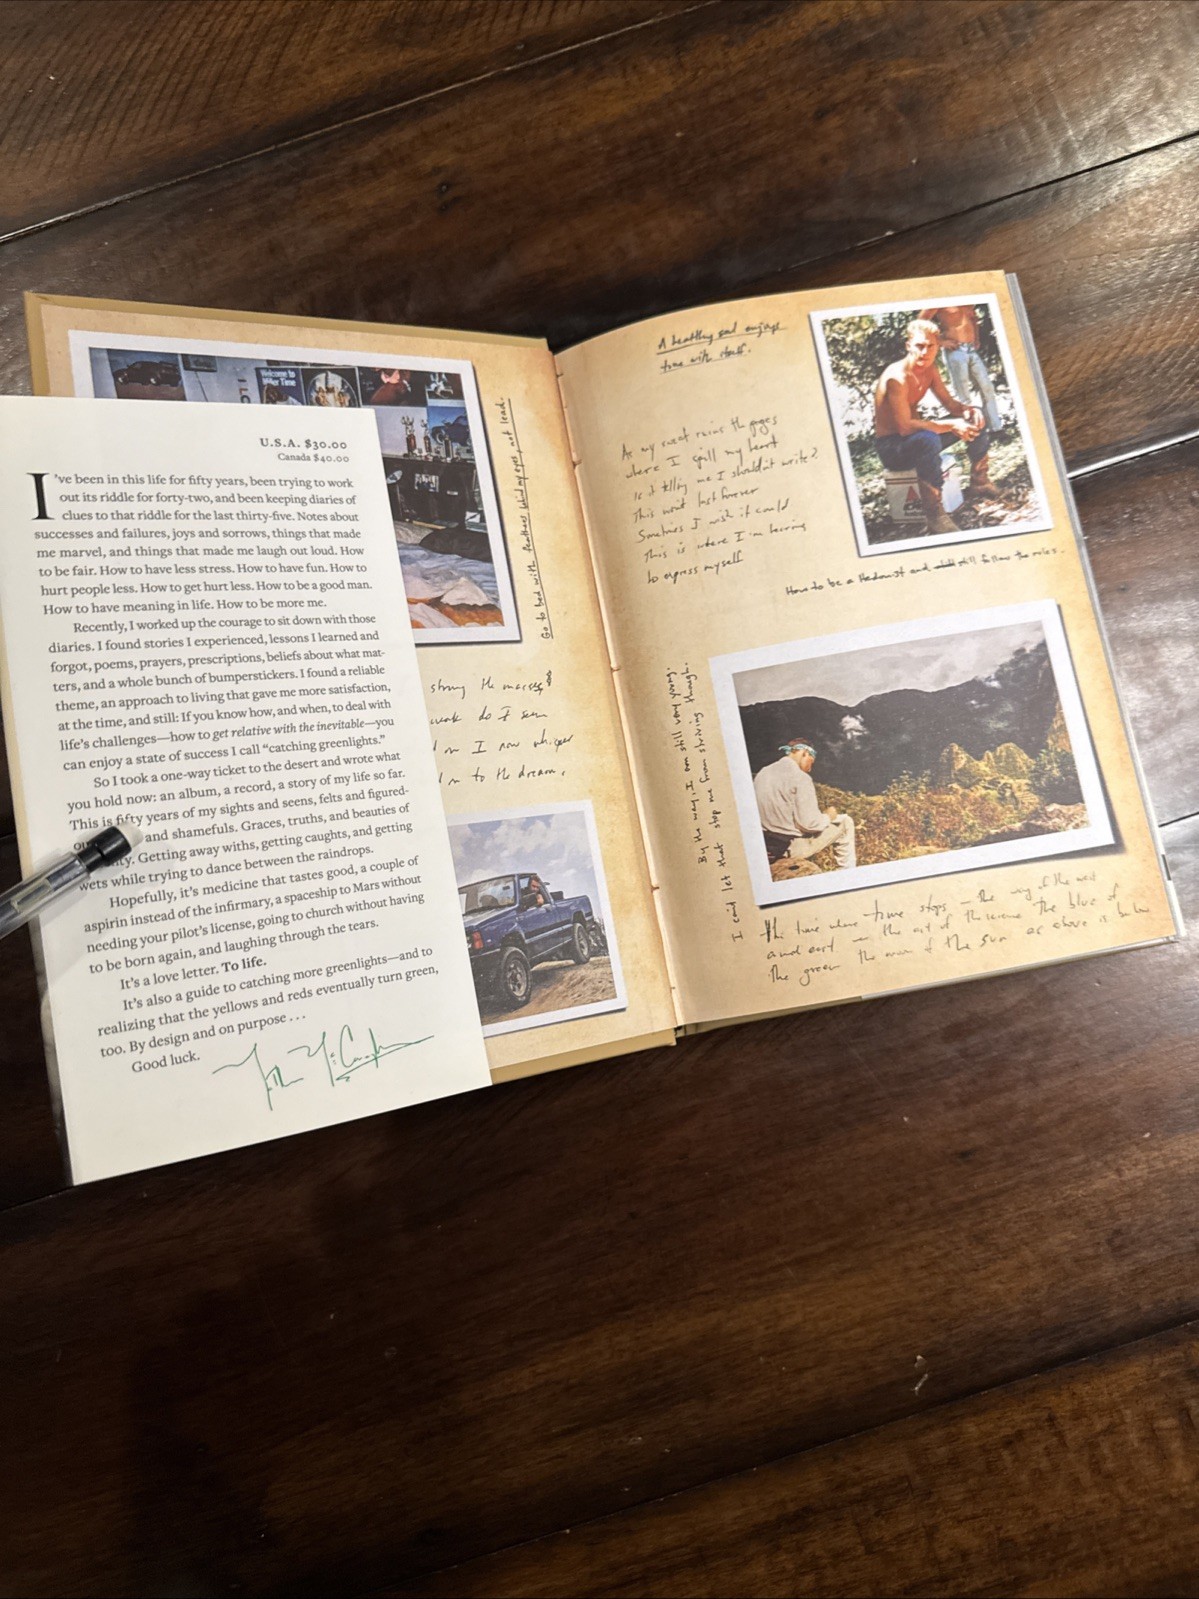 U.S.A. $30.00
Canada $40.00
I've been in this life for fifty years, been trying to work
out its riddle for forty-two, and been keeping diaries of
clues to that riddle for the last thirty-five. Notes about
successes and failures, joys and sorrows, things that made
me marvel, and things that made me laugh out loud. How
to be fair. How to have less stress. How to have fun. How to
hurt people less. How to get hurt less. How to be a good man.
How to have meaning in life. How to be more me.
Recently, I worked up the courage to sit down with those
diaries. I found stories I experienced, lessons I learned and
forgot, poems, prayers, prescriptions, beliefs about what mat-
ters, and a whole bunch of bumperstickers. I found a reliable
theme, an approach to living that gave me more satisfaction,
at the time, and still: If you know how, and when, to deal with
life's challenges—how to get relative with the inevitable—you
can enjoy a state of success I call “catching greenlights.”
So I took a one-way ticket to the desert and wrote what
you hold now: an album, a record, a story of my life so far.
This is fifty years of my sights and seens, felts and figured-
and shamefuls. Graces, truths, and beauties of
Getting away withs, getting caughts, and getting
wets while trying to dance between the raindrops.
Hopefully, it's medicine that tastes good, a couple of
aspirin instead of the infirmary, a spaceship to Mars without
needing your pilot's license, going to church without having
to be born again, and laughing through the tears.
It's a love letter. To life.
It's also a guide to catching more greenlights—and to
realizing that the yellows and reds eventually turn green,
too. By design and on purpose . . .
Good luck.
Welcome to
Miller Time
Go to bed with feathers behind my eyes, not lead.
strong the
weak do I seem
I now whisper
to the dream.
A healthy soul enjoys
time with itself.
As my sweat ruins the pages
where I spill my heart
Is it telling me I shouldn't write?
This won't last forever
Sometimes I wish it could
This is where I'm learning
to express myself
How to be a Hedonist and still follow the rules.
By the way, I am still very young.
I can't let that stop me from striving though.
the time where time stops – the way of the west
and east – the art of the scene the blue of
the green the moon of the sun as above is below